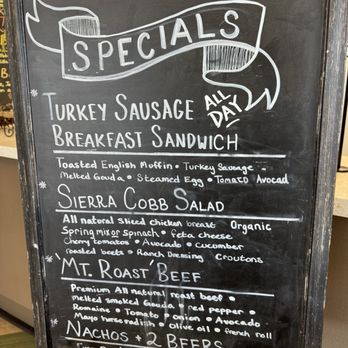 SPECIALS
TURKEY SAUSAGE
ALL
DAY
BREAKFAST SANDWICH
Toasted English Muffin • Turkey Sausage •
Melted Gouda • Steamed Egg • Tomato Avocad
SIERRA COBB SALAD
All natural sliced chicken breast Organic
Spring mix or spinach • feta cheese
Cherry tomatoes • Avocado • cucumber
roasted beets • Ranch Dressing Croutons
MT. ROAST BEEF
Premium All natural roast beef •
melted smoked Gouda • red pepper •
Romaine • Tomato • onion • Avocado •
Mayo horseradish • olive oil • french roll
NACHOS + 2 BEERS